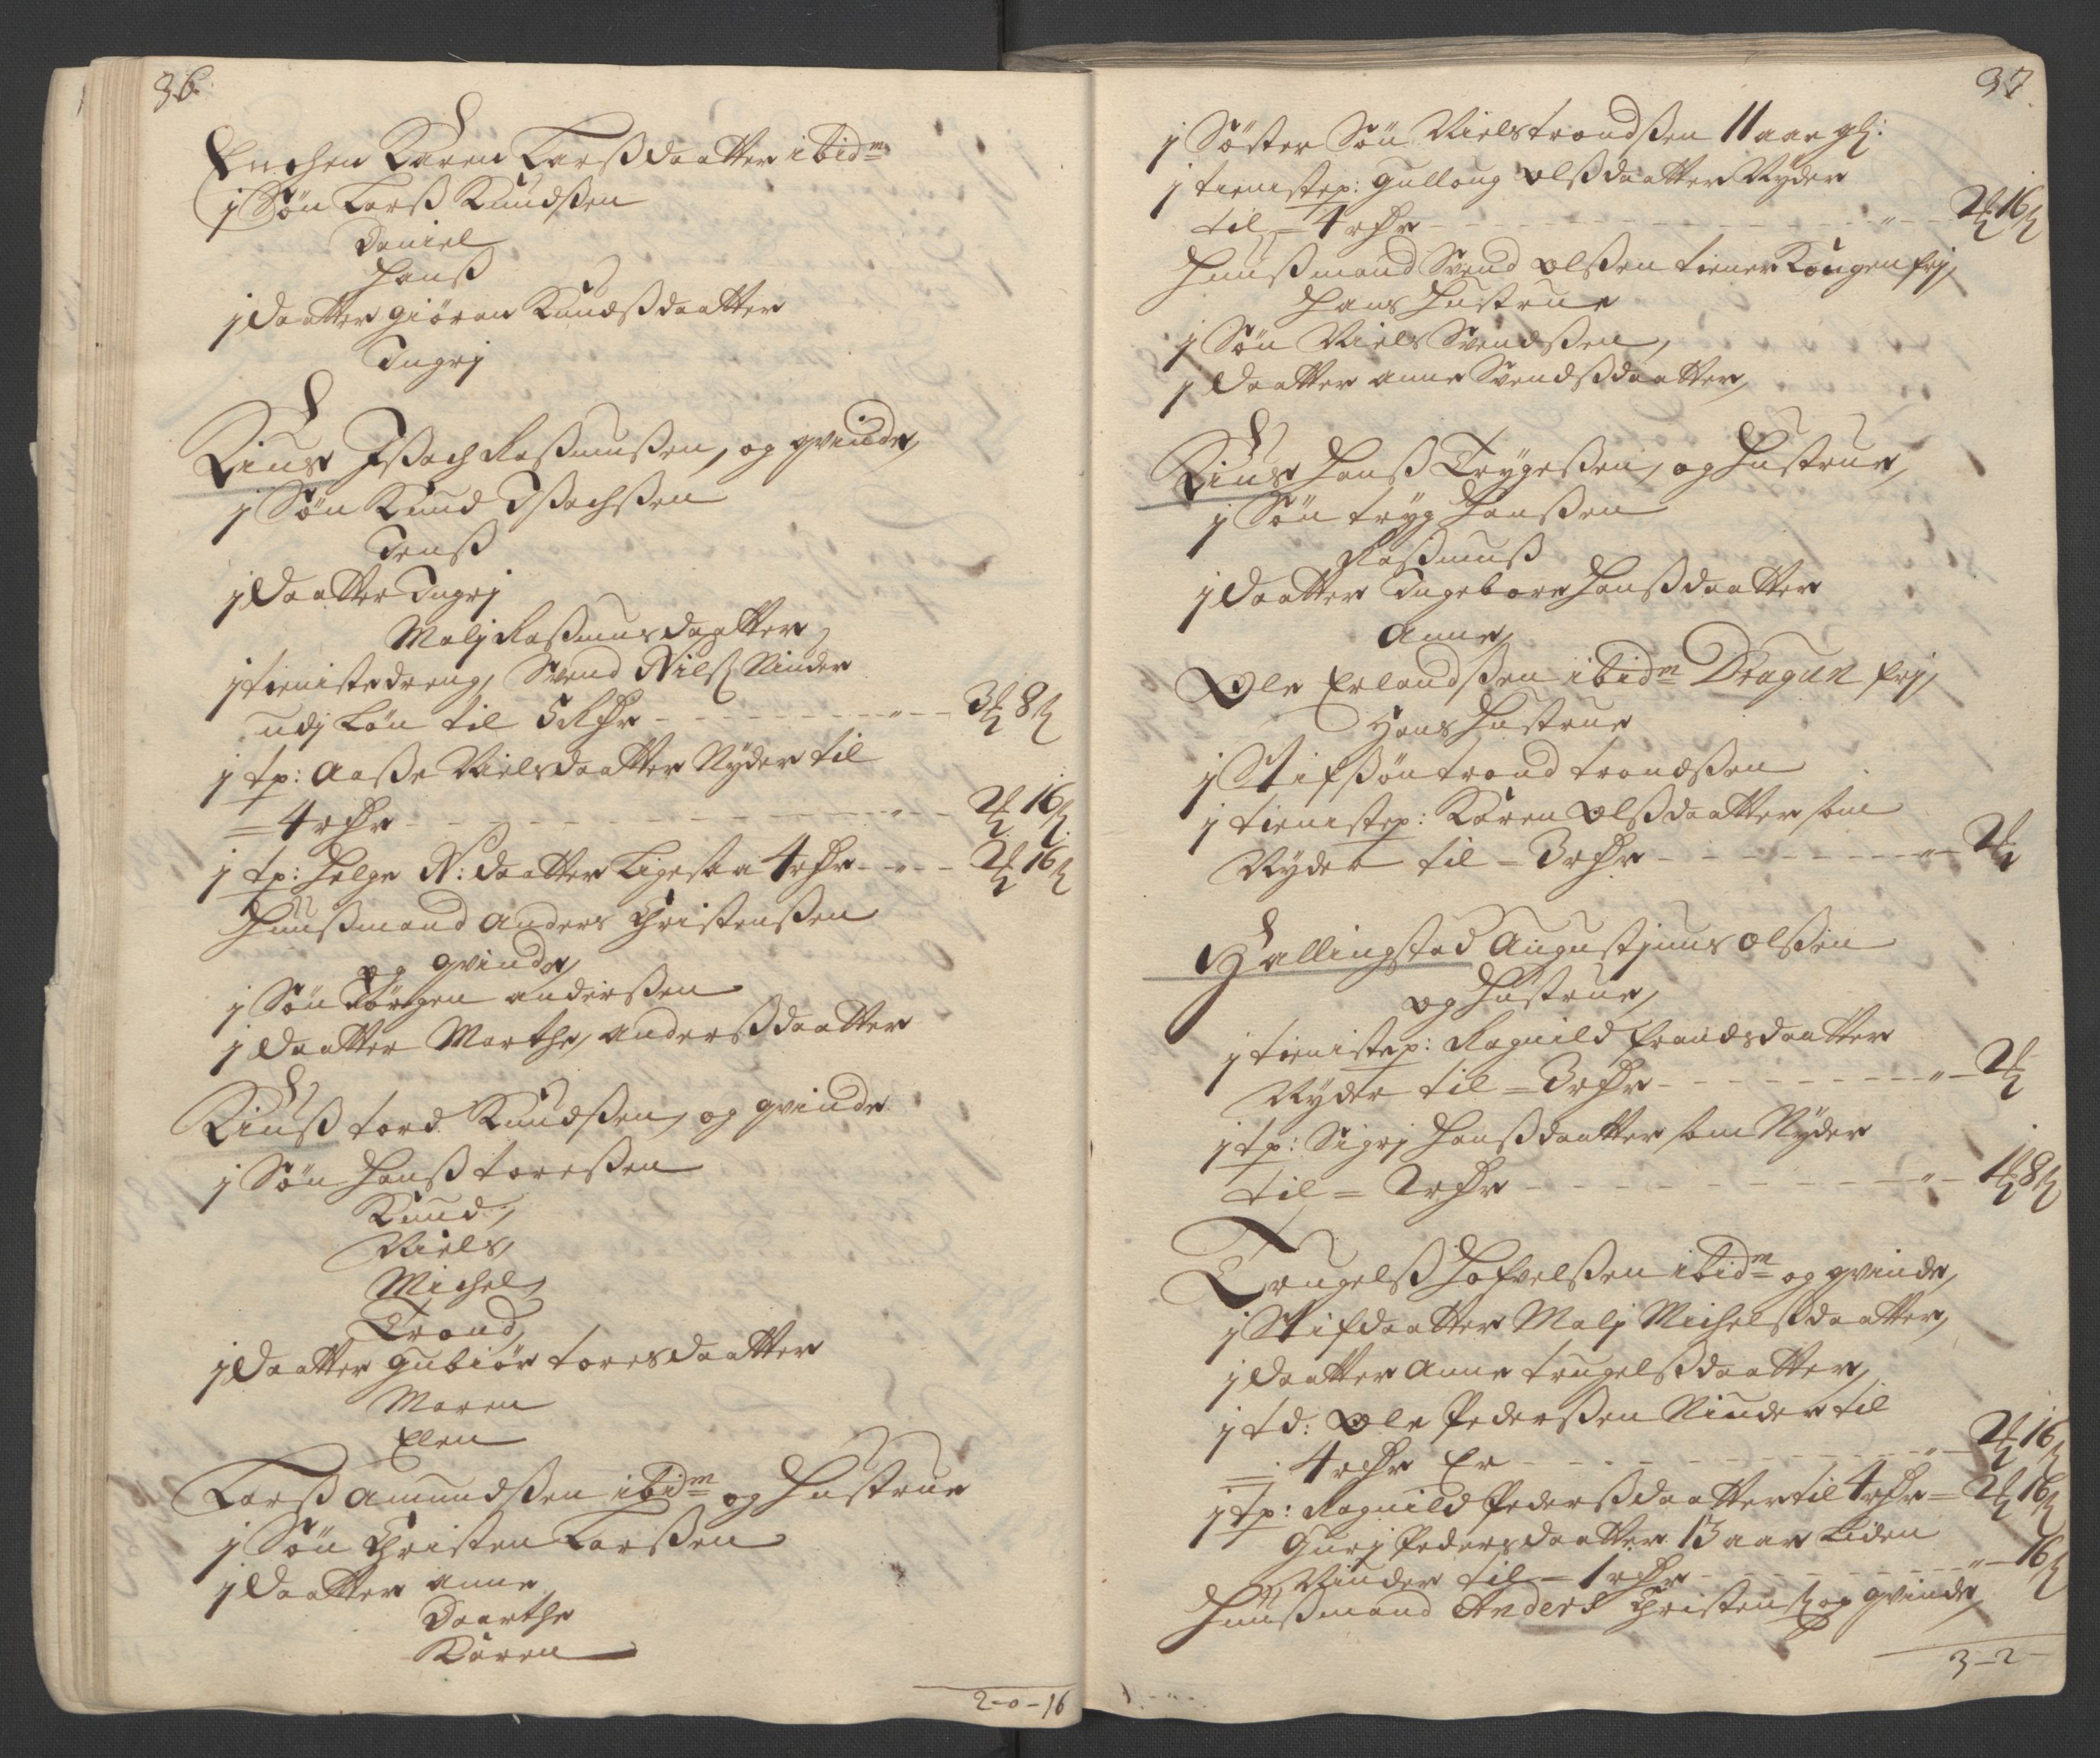 36.
Enchen Karen Larsßdaatter ibidm
1 Søn Larß Knudsßen
Daniel
Hanß
1 daatter Giøran Knudsßdaatter
Ingrj
Riuse Isach Rasmusßen, og qvinde,
1 Søn Knud Isachsßen
Jenß
1 daatter Ingrj
Malj Rasmusdaatter
1 tienistedreng, Svend Nilsß Niuder
udj Løn til 5 Rdr - - - " - 3 8
1 tp: Aasße Nielsdaatter Nyder til
= 4 rdr - - - " - 2 16
1 tp: Helge N: daatter Ligesaa 4 rdr - " - 2 16
Huusßmand Anders Christensßen
og qvinde,
1 Søn Jørgen Andersßen
1 daatter Marthe Andersßdaatter
Riusß Tord Knudsßen, og qvinde
1 Søn Hanß Toresßen
Knud,
Niels,
Michel,
Trond,
1 daatter Gubiør Toresdaatter
Maren
Elen
Larß Amundsßen ibidm og Hustrue
1 Søn Christen Larsßen
1 daatter Anne
Dorthe
Karen
2-0-16
37.
1 Søster Søn Niels Trondsßen 11 aar gl:
1 tienistep: Gulloug Olsßdaatter Nyder
til = 4 rdr - - - " - 2 16
Huusßmand Svend Olsßen tiener Kongen frj,
Hans Hustrue
1 Søn Niels Svendsßen,
1 daatter Anne Svendsßdaatter,
Riuse Hanß Trygesßen, og Hustrue,
1 Søn Tryg Hansßen
Rasmuß
1 daatter Ingebore Hansßdaatter
Anne,
Ole Erlandsßen ibidm Dragun frj,
Hans Hustrue
1 Stifsøn Trond Trondsßen
1 tienistep: Karen Olsßdaatter som
Nyder til = 3 rdr - - - " - 2
Hallingstad Augustinus Olsßen
og Hustrue,
1 tienistep: Ragnild Frandsdaatter
Nyder til = 3 rdr - - - " - 2
1 tp: Sigrj Hansßdaatter som Nyder
til = 2 rdr - - - " - 1 8
Trugelß Hofvelsßen ibidm og qvinde,
1 Stifdaatter Malj Michelsßdaatter,
1 daatter Anne Trugelsßdaatter,
1 td: Ole Pedersßen Niuder til
= 4 rdr Er - - - " - 2 16
1 tp: Ragnild Pedersßdaatter til 4 rdr - 2 16
Gurj Pedersdaatter 13 aar Liden
Niuder til = 1 rdr - - - " - 16
Huusßmand Anders Christensß og qvinde,
3-2-